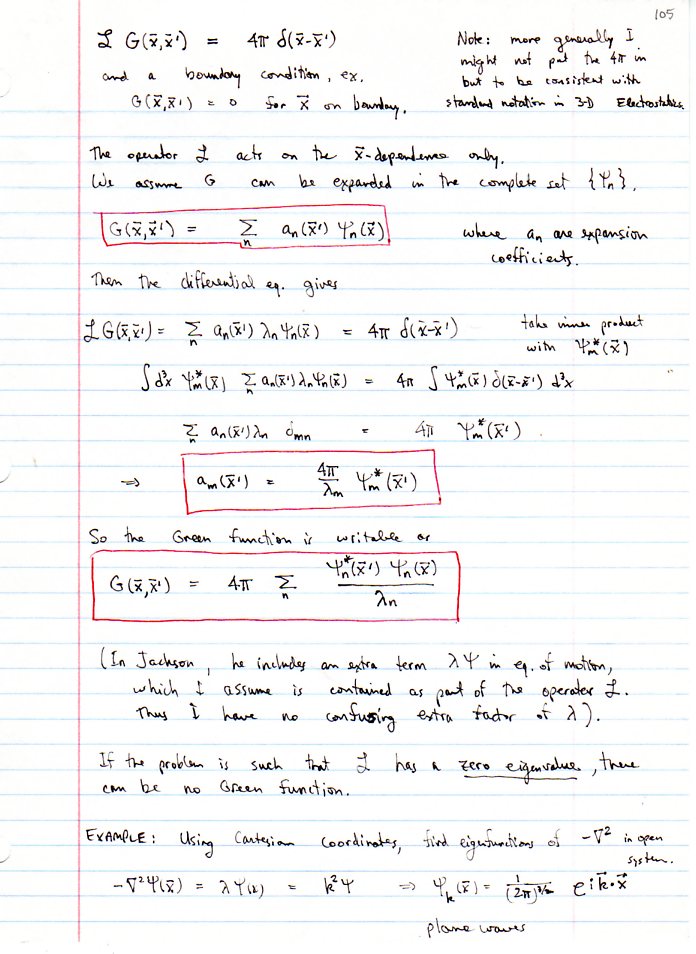 105
ℒ G(x⃗,x⃗') = 4π δ(x⃗-x⃗')
Note: more generally I
might not put the 4π in
but to be consistent with
standard notation in 3-D Electrostatics.
and a boundary condition, ex.
G(x⃗,x⃗') = 0 for x⃗ on boundary.
The operator ℒ acts on the x⃗-dependence only.
We assume G can be expanded in the complete set {Ψn}.
G(x⃗,x⃗') = Σn an(x⃗') Ψn(x⃗)
where an are expansion
coefficients.
Then the differential eq. gives
ℒ G(x⃗,x⃗') = Σn an(x⃗') λn Ψn(x⃗) = 4π δ(x⃗-x⃗')
take inner product
with Ψm*(x⃗)
∫d³x Ψm*(x⃗) Σn an(x⃗') λn Ψn(x⃗) = 4π ∫ Ψm*(x⃗) δ(x⃗-x⃗') d³x
Σn an(x⃗') λn δmn = 4π Ψm*(x⃗').
⇒ am(x⃗') = 4π/λm Ψm*(x⃗')
So the Green function is writable as
G(x⃗,x⃗') = 4π Σn Ψn*(x⃗') Ψn(x⃗)/λn
(In Jackson, he includes an extra term λΨ in eq. of motion,
which I assume is contained as part of the operator ℒ.
Thus I have no confusing extra factor of λ).
If the problem is such that ℒ has a zero eigenvalue, there
can be no Green function.
EXAMPLE: Using Cartesian coordinates, find eigenfunctions of -∇² in open
system.
-∇²Ψ(x⃗) = λΨ(x) = k²Ψ ⇒ Ψk(x⃗) = 1/(2π)^3/2 e^ik⃗·x⃗
plane waves